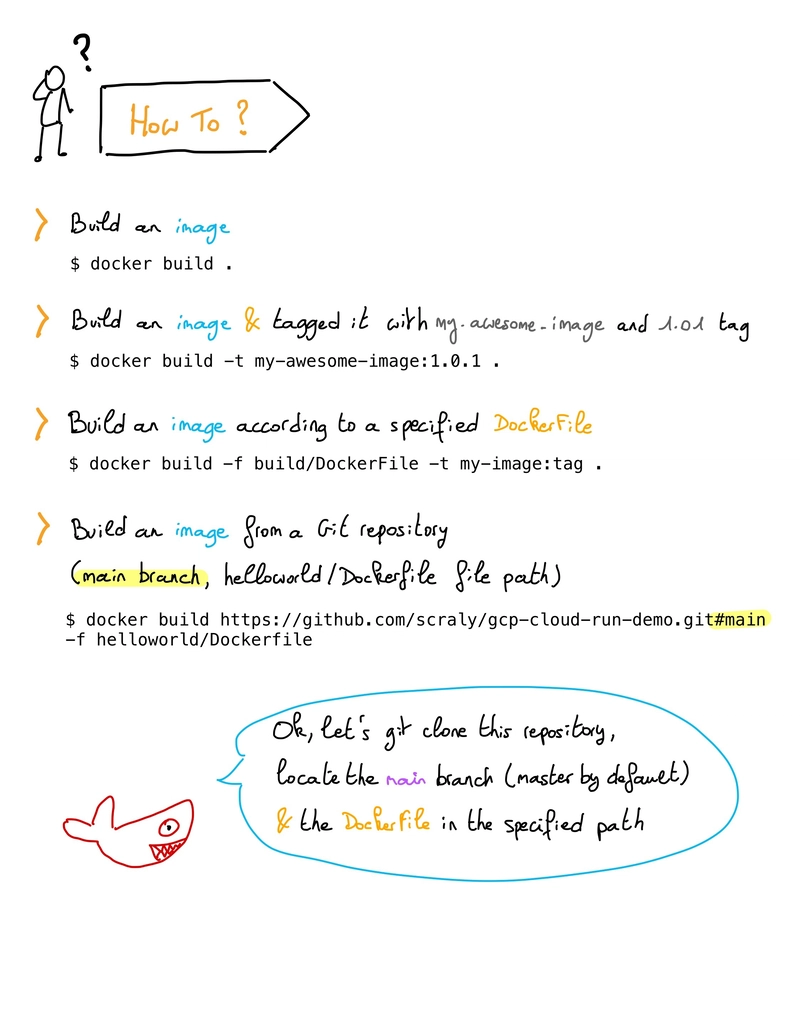 ?
How To ?
Build an image
$ docker build .
Build an image & tagged it with my-awesome-image and 1.01 tag
$ docker build -t my-awesome-image:1.0.1 .
Build an image according to a specified DockerFile
$ docker build -f build/DockerFile -t my-image:tag .
Build an image from a Git repository
(main branch, helloworld/Dockerfile file path)
$ docker build https://github.com/scraly/gcp-cloud-run-demo.git#main
-f helloworld/Dockerfile
Ok, let's git clone this repository,
locate the main branch (master by default)
& the DockerFile in the specified path